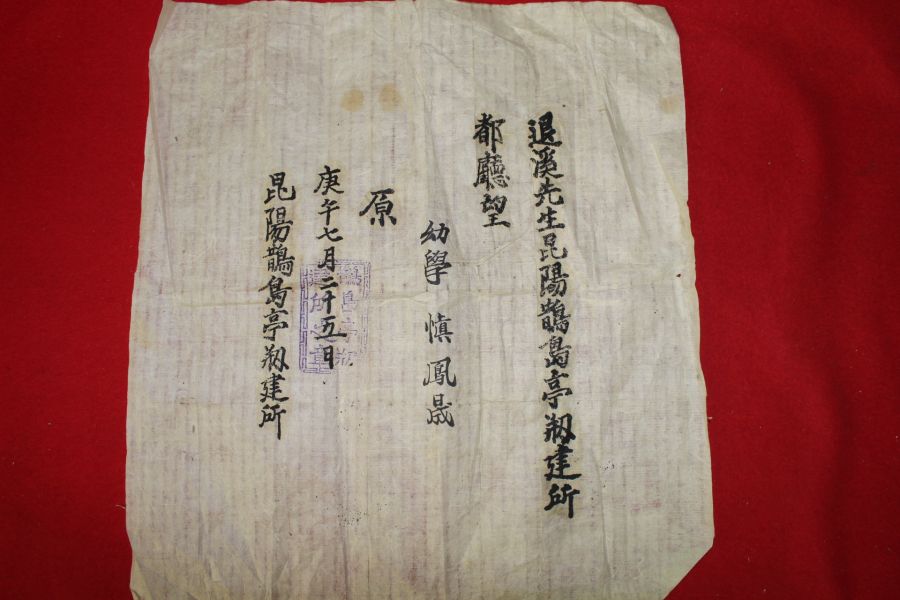 退溪先生昆陽鵲島亭剏建所
都廳望
幼學 愼鳳晟
原
庚午七月二十五日
昆陽鵲島亭剏建所